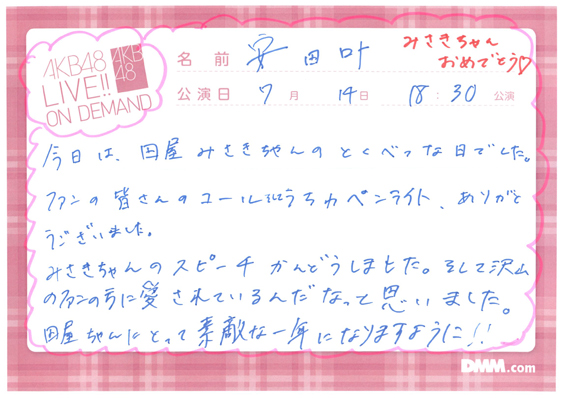 AKB48
LIVE!!
ON DEMAND
AKB
48
名前 安田叶
みさきちゃん
おめでとう♡
公演日 7月 14日 18:30 公演
今日は、田屋みさきちゃんのとくべつな日でした。
ファンの皆さんのコール うちわ ペンライト、ありがと
うございました。
みさきちゃんのスピーチかんどうしました。そして沢山
のファンの方に愛されているんだなって思いました。
田屋ちゃんにとって素敵な一年になりますように!!
DMM.com